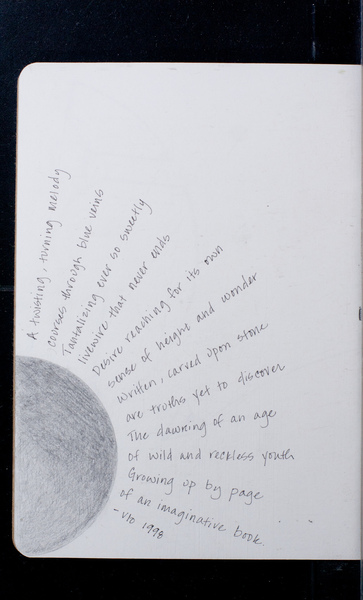 A twisting, turning melody
courses through blue veins
Tantalizing ever so sweetly
livewire that never ends
Desire reaching for its own
sense of height and wonder
Written, carved upon stone
are truths yet to discover
The dawning of an age
of wild and reckless youth
Growing up by page
of an imaginative book.
- vto 1998